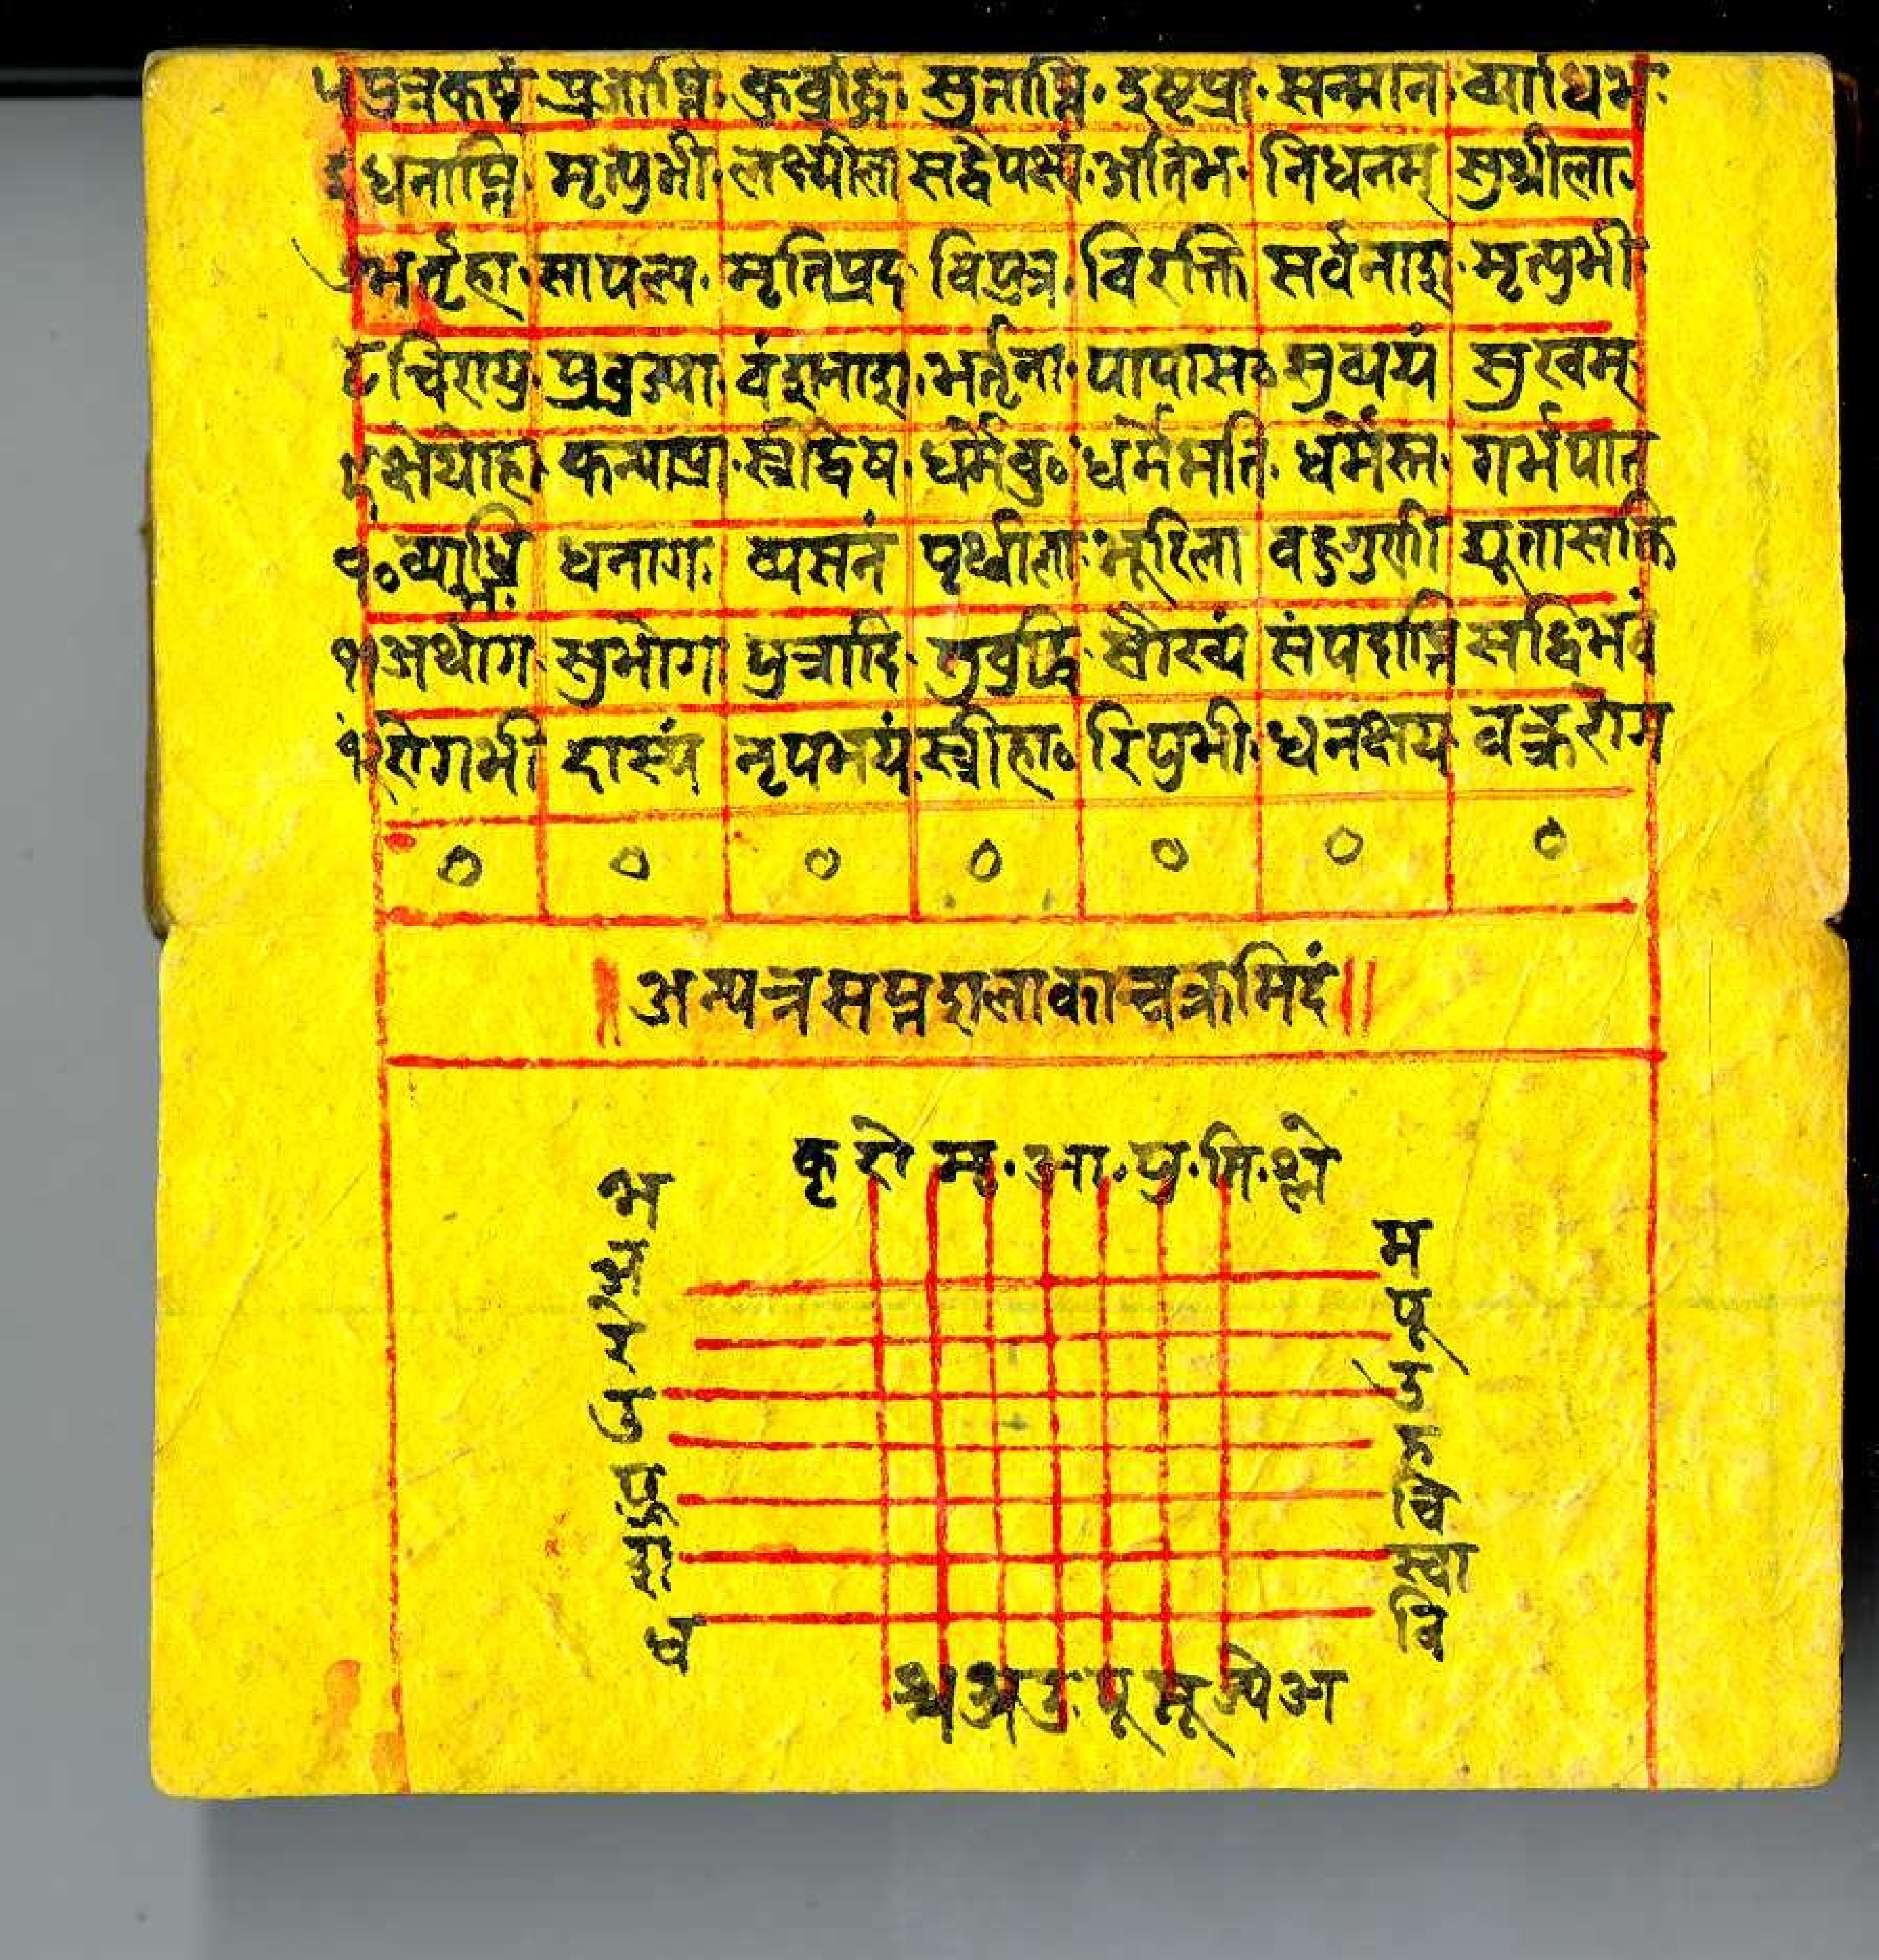 ५ पुत्रकष्ट प्रजाप्ति. कुबुद्धि. सुताप्ति. दुष्टप्र. सन्मान. व्याधिभ.
धनाप्ति मृत्युभी. लक्ष्मीला सद्वैपक्ष्यं. अतिभ. निधनम् सुश्रीला.
भर्तृहा. सापत्न्य. मृतिप्रद विपुत्र. विरक्ति सर्वनाश. मृत्युभी
८ चिरायु. प्रव्रज्या. वंशनाश. भर्तृना. पापास० सुव्ययं सुखम्
९ श्रेयोहा कन्याप्र. स्त्रीद्वेष. धर्मबु० धर्ममति. धर्मस्त. गर्भपात
१० व्याधि भ. धनाग. व्यसनं पृथ्वीला. भूरिला वहुगुणी द्यूतासक्ति
११ अर्थाग. सुभोग पुत्रादि. सुवुद्धि. सौख्यं संपदाप्ति सद्विभवं
१२ रोगभी दास्यं नृपभयं. स्त्रीहा० रिपुभी. धनक्षय. वक्त्ररोग
० ० ० ० ० ० ०
॥ अन्यत्र सप्तशलाकाचक्रमिदं ॥
कृ रो मृ. आ. पु. ति. श्ले
भ
अ
रे
उ
पू
श
ध
म
पू
उ
ह
चि
स्वा
वि
श्र अ उ पू मू ज्ये अ